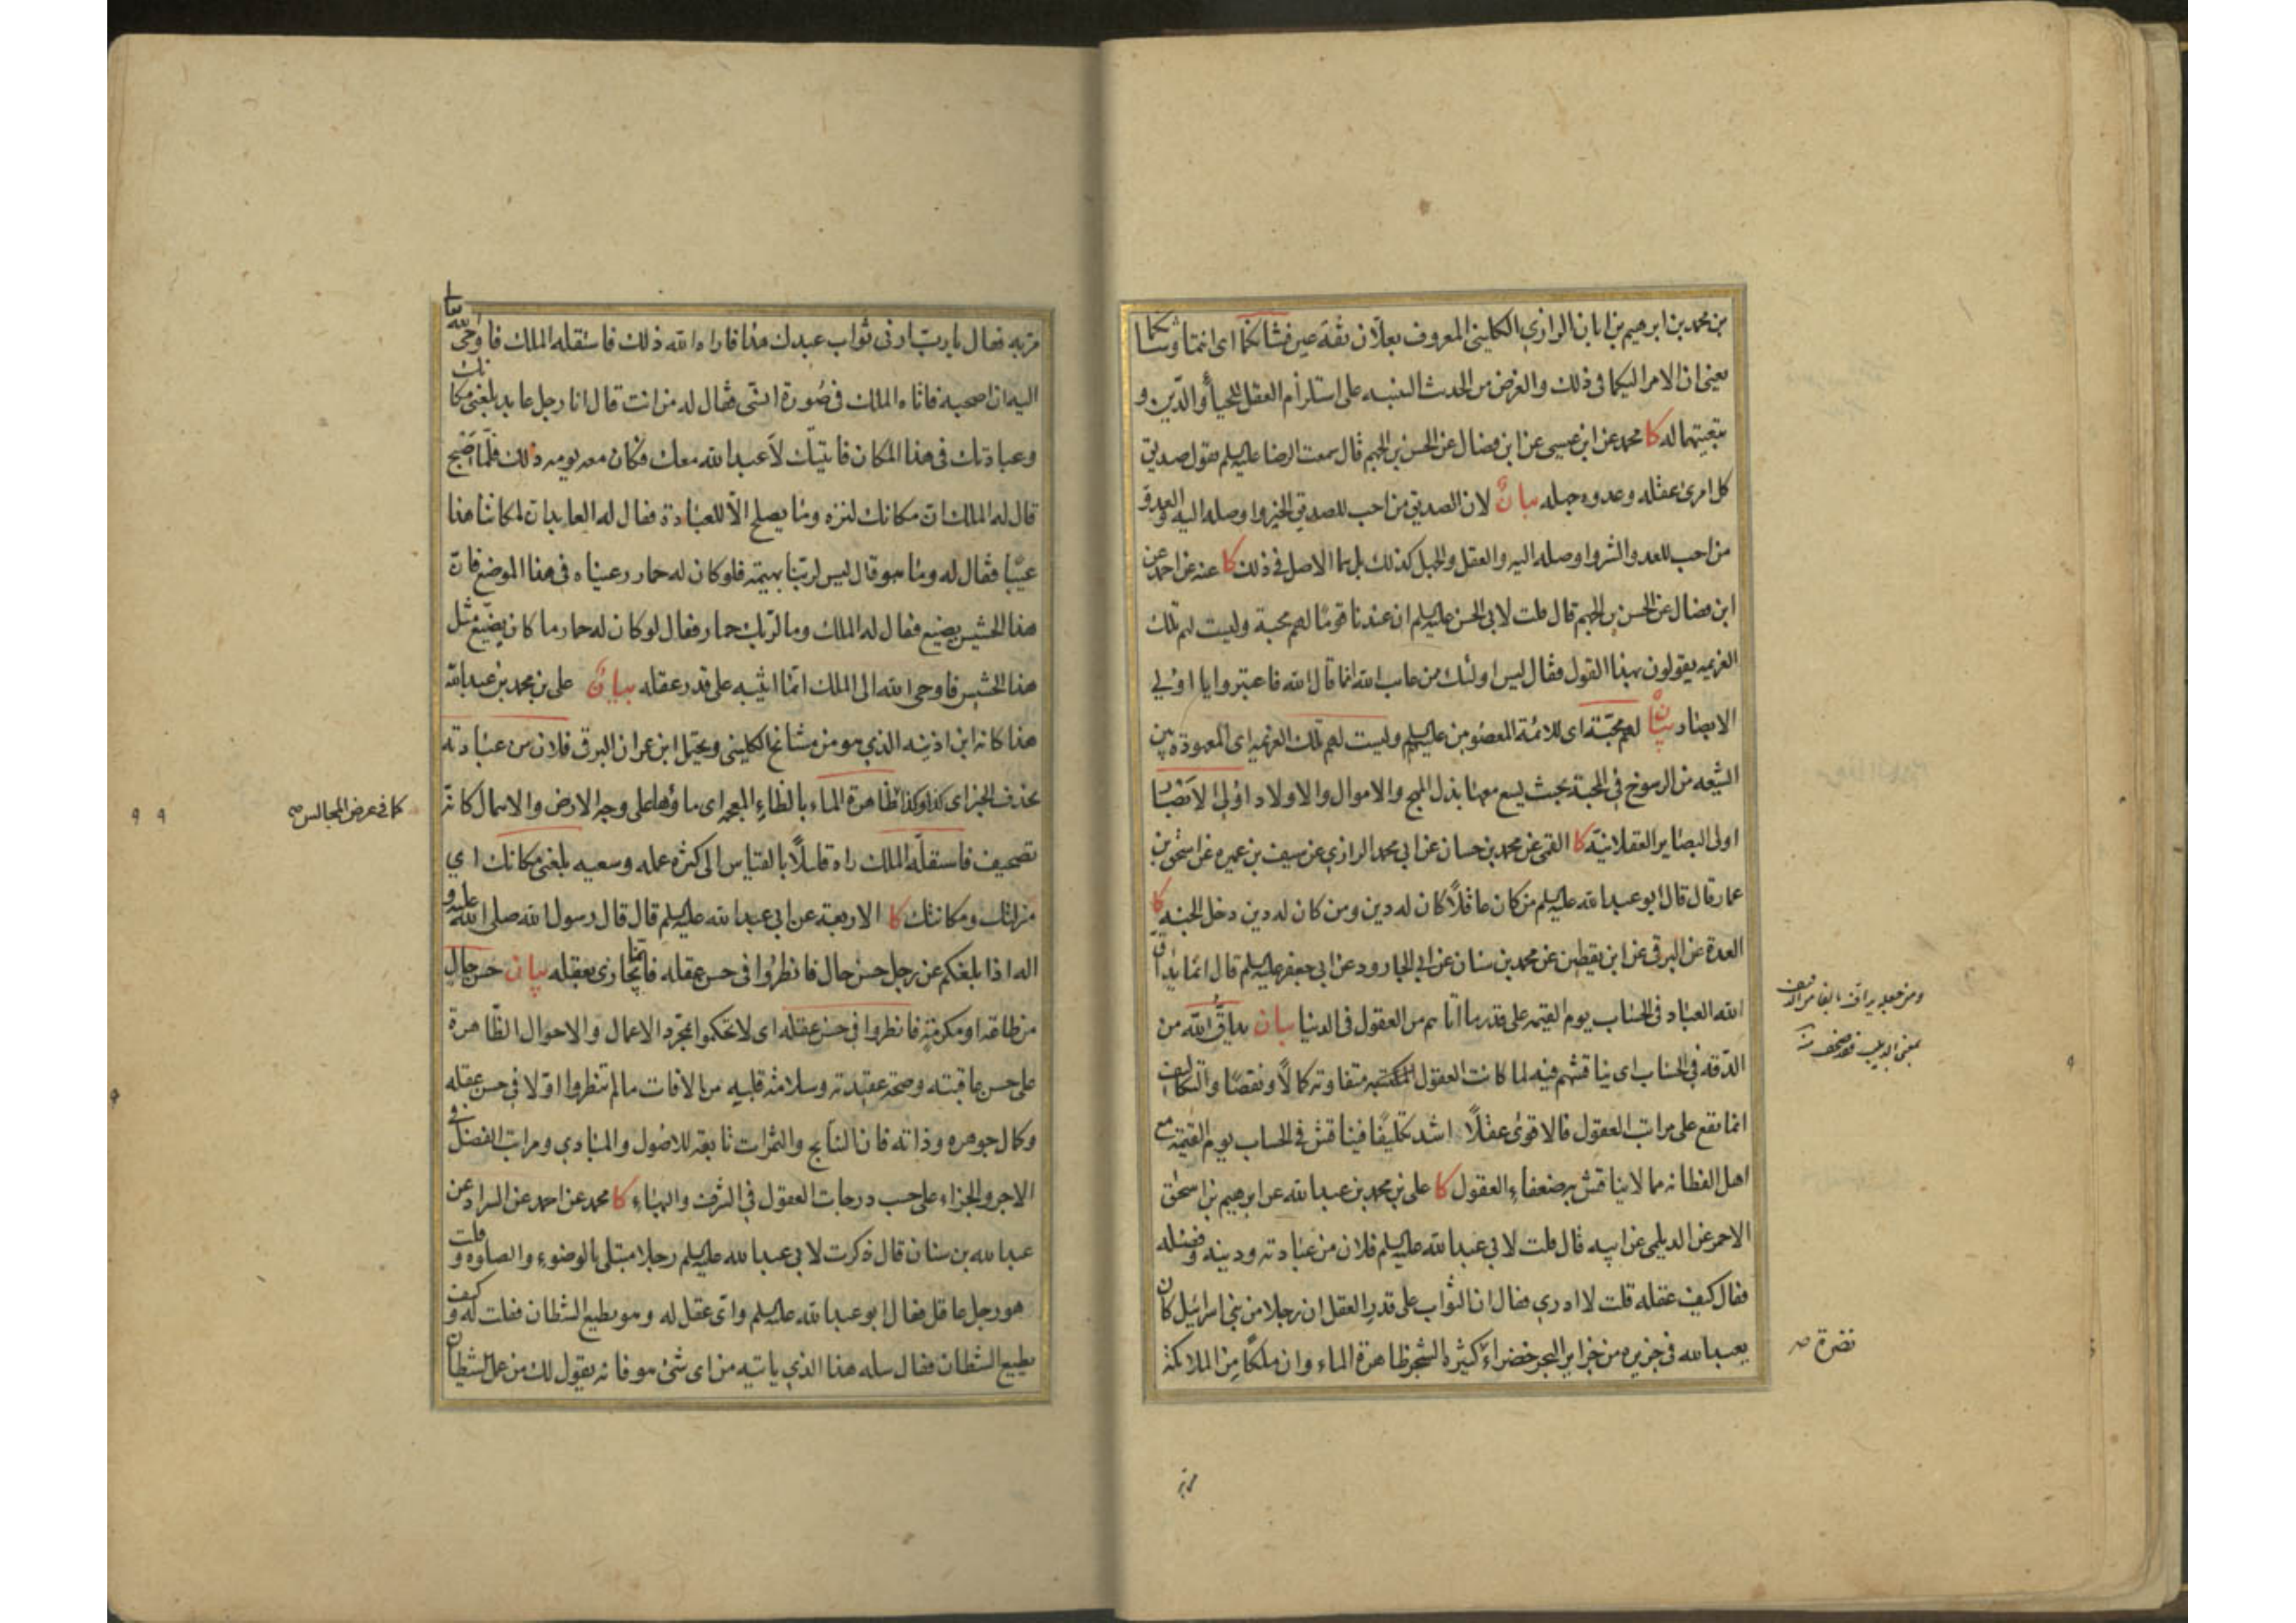 بن محمد بن ابرهيم بن ابان الرازي الكليني المعروف بعلّان ثقة عين فشانكما اى انتما وشانكما
يعنى ان الامر اليكما فى ذلك والغرض من الحديث التنبيه على استلزام العقل للحياء والدّين و
تبعيتهما له كا محمد عن ابن عيسى عن ابن فضال عن الحسن بن الجهم قال سمعت الرضا عليه السلم يقول صديق
كل امرئ عقله وعدوه جهله بيان لان الصديق من احب للصديق الخير واوصله اليه والعدو
من احب للعدو الشر واوصله اليه والعقل والجهل كذلك بل هما الاصل فى ذلك كا عنه عن احمد عن
ابن فضال عن الحسن بن الجهم قال قلت لابى الحسن عليه السلم ان عندنا قومًا لهم محبة وليست لهم تلك
العزيمه يقولون بهذا القول فقال ليس اولئك ممن عاتب الله انما قال الله فاعتبروا يا اولي
الابصار بيان لهم محبّة اى للائمة المعصومين عليهم السلم وليست لهم تلك العزيمه اى المعهودة بين
الشيعه من الرسوخ فى المحبة بحيث يسع معها بذل المهج والاموال والاولاد اولى الابصار
اولى البصاير العقلانيّة كا القمى عن محمد بن حسان عن ابى محمد الرازي عن سيف بن عميره عن اسحق بن
عمار قال قال ابو عبد الله عليه السلم من كان عاقلاً كان له دين ومن كان له دين دخل الجنه كا
العدة عن البرقى عن ابن يقطين عن محمد بن سنان عن ابى الجارود عن ابى جعفر عليه السلم قال انما يداقّ
الله العباد فى الحساب يوم القيمه على قدر ما اتاهم من العقول فى الدنيا بيان يداقّ الله من
الدّقه فى الحساب اى يناقشهم فيه لما كانت العقول المكتسبه متفاوته كمالاً ونقصًا والتكاليف
انما تقع على مراتب العقول فالاقوى عقلاً اشد تكليفًا فيناقش فى الحساب يوم القيمة مع
اهل الفطانه مما لا يناقش به ضعفاء العقول كا على بن محمد بن عبد الله عن ابرهيم بن اسحق
الاحمر عن الديلمى عن ابيه قال قلت لابى عبد الله عليه السلم فلان من عبادته ودينه وفضله
فقال كيف عقله قلت لا ادري فقال ان الثواب على قدر العقل ان رجلا من بنى اسرائيل كان
يعبد الله فى جزيره من جزاير البحر خضراء كثيره الشجر ظاهرة الماء وان ملكًا من الملائكة
ومن جعله يداف بالفاء من الدّيف
بمعنى
نضرة صح
مرّ به
مرّ به فقال يا ربّ ارنى ثواب عبدك هذا فاراه الله ذلك فاستقله الملك فاوحى الله تعا
اليه ان اصحبه فاتاه الملك فى صُورة انسى فقال له من انت قال انا رجل عابد بلغنى مكانك
وعبادتك فى هذا المكان فاتيتك لاعبد الله معك فكان معه يومه ذلك فلمّا اصبح
قال له الملك ان مكانك لنزه وما يصلح الّا للعبادة فقال له العابد ان لمكاننا هذا
عيبًا فقال له وما هو قال ليس لربّنا بهيمة فلو كان له حمار رعيناه فى هذا الموضع فان
هذا الحشيش يضيع فقال له الملك وما لربّك حمار فقال لو كان له حمار ما كان يضيّع مثل
هذا الحشيش فاوحى الله الى الملك انما اثيبه على قدر عقله بيان على بن محمد بن عبد الله
هذا كانه ابن اذينه الذي هو من مشائخ الكليني ويحتمل ابن عمران البرقى فلان من عبادته
بحذف الخبر اى كذا وكذا ظاهرة الماء بالظاء المعجمه اى ماؤها على وجه الارض والاهمال كانّه
تصحيف فاستقلّه الملك راه قليلاً بالقياس الى كثرة عمله وسعيه بلغنى مكانك اي
منزلتك ومكانتك كا الاربعة عن ابى عبد الله عليه السلم قال قال رسول الله صلى الله عليه و
اله اذا بلغكم عن رجل حسن حال فانظروا فى حسن عقله فانما يجازى بعقله بيان حسن حال
من طاقه او مكرمة فانظروا فى حسن عقله اى لا تحكموا بمجرّد الاعمال والاحوال الظّاهرة
على حسن عاقبته وصحة عقيدته وسلامة قلبه من الافات ما لم تنظروا اوّلا فى حسن عقله
وكمال جوهره وذاته فان النتايج والثمرات تابعة للاصُول والمبادي ومراتب الفضل فى
الاجر والجزاء على حسب درجات العقول فى الشرف والبهاء كا محمد عن احمد عن السراد عن
عبد الله بن سنان قال ذكرت لابى عبد الله عليه السلم رجلا مبتلى بالوضوء والصلوه وقلت
هو رجل عاقل فقال ابو عبد الله عليه السلم واىّ عقل له وهو يطيع الشطان فقلت له وكيف
يطيع الشطان فقال سله هذا الذي ياتيه من اى شئ هو فانه يقول لك من عمل الشيطان
كما فى عرض المجالس صح